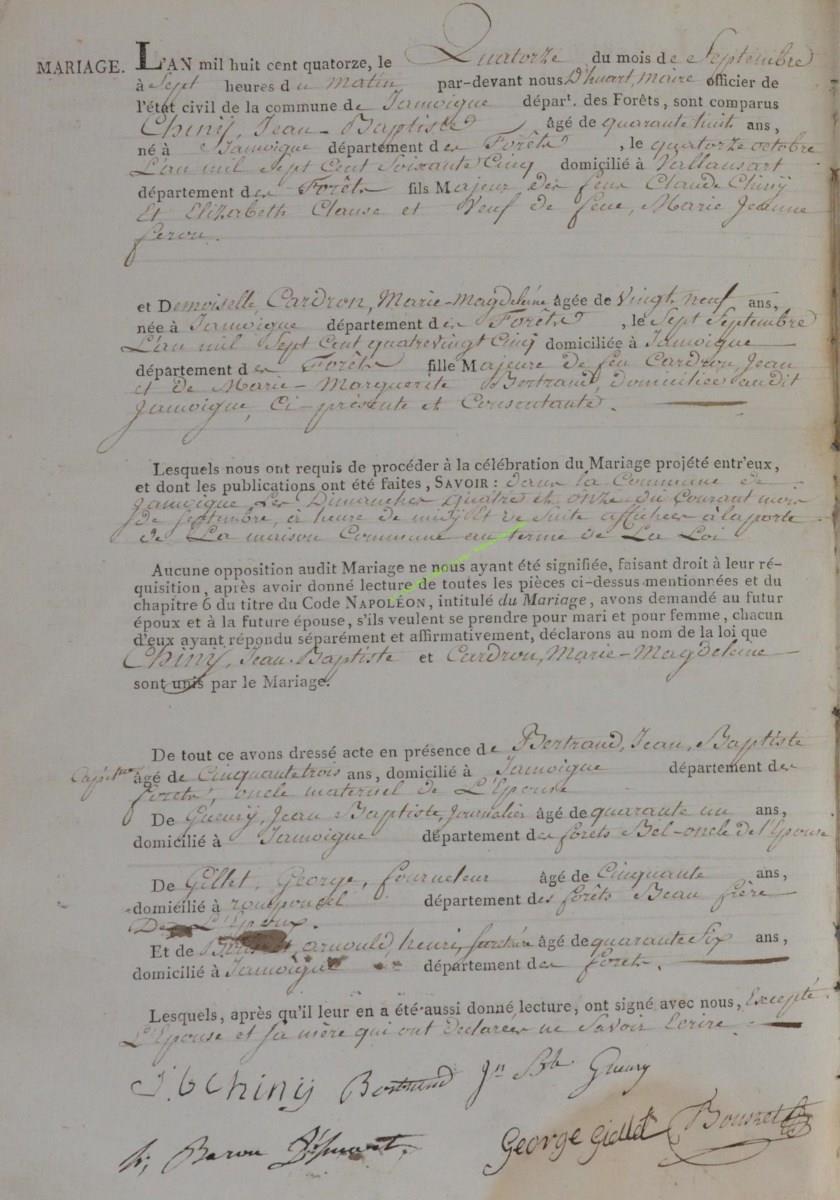 MARIAGE. L'AN mil huit cent quatorze, le Quatorze du mois de Septembre
à Sept heures du matin par-devant nous D'huart, Maire officier de
l'état civil de la commune de Jamoigne départ. des Forêts, sont comparus
Chiny, Jean-Baptiste âgé de quarante huit ans,
né à Jamoigne département des Forêts, le quatorze octobre
L'an mil Sept Cent Soixante Cinq domicilié à Vallansart
département des Forêts fils Majeur des feus Claude Chiny
Et Elizabeth Clause et Veuf de feue, Marie Jeanne
feron.
et Demoiselle Cardron, Marie-Magdeleine âgée de Vingt neuf ans,
née à Jamoigne département des Forêts, le Sept Septembre
L'an mil Sept Cent quatrevingt Cinq domiciliée à Jamoigne
département des Forêts fille Majeure de feu Cardron, Jean
et de Marie-Marguerite Bertrand, domiciliée audit
Jamoigne, Ci-présente et Consentante.
Lesquels nous ont requis de procéder à la célébration du Mariage projété entr'eux,
et dont les publications ont été faites, SAVOIR : dans la Commune de
Jamoigne Les Dimanches quatre et onze du Courant mois
de Septembre, à heure de midy Et de Suite affichées à la porte
de La maison Commune au terme de La Loi
Aucune opposition audit Mariage ne nous ayant été signifiée, faisant droit à leur ré-
quisition, après avoir donné lecture de toutes les pièces ci-dessus mentionnées et du
chapitre 6 du titre du Code NAPOLÉON, intitulé du Mariage, avons demandé au futur
époux et à la future épouse, s'ils veulent se prendre pour mari et pour femme, chacun
d'eux ayant répondu séparément et affirmativement, déclarons au nom de la loi que
Chiny, Jean-Baptiste et Cardron, Marie-Magdeleine
sont unis par le Mariage.
De tout ce avons dressé acte en présence de Bertrand, Jean, Baptiste
âgé de Cinquante trois ans, domicilié à Jamoigne département des
forêts, oncle maternel de L'Epouse
De Gueury, Jean Baptiste, Journalier âgé de quarante un ans,
domicilié à Jamoigne département des forêts Bel-oncle de l'Epouse
De Gillet, George, fourneleur âgé de Cinquante ans,
domicilié à romponcel département des forêts Beau frère
De L'Epoux.
Et de arnould, henri, Secrétaire âgé de quarante Six ans,
domicilié à Jamoigne département des forêts.
Lesquels, après qu'il leur en a été aussi donné lecture, ont signé avec nous, Excepté
L'Epouse et sa mère qui ont declarées ne Savoir Ecrire.
J. b Chiny Bertrand Jn Bte Gueury
Baron D'huart, George Gillet